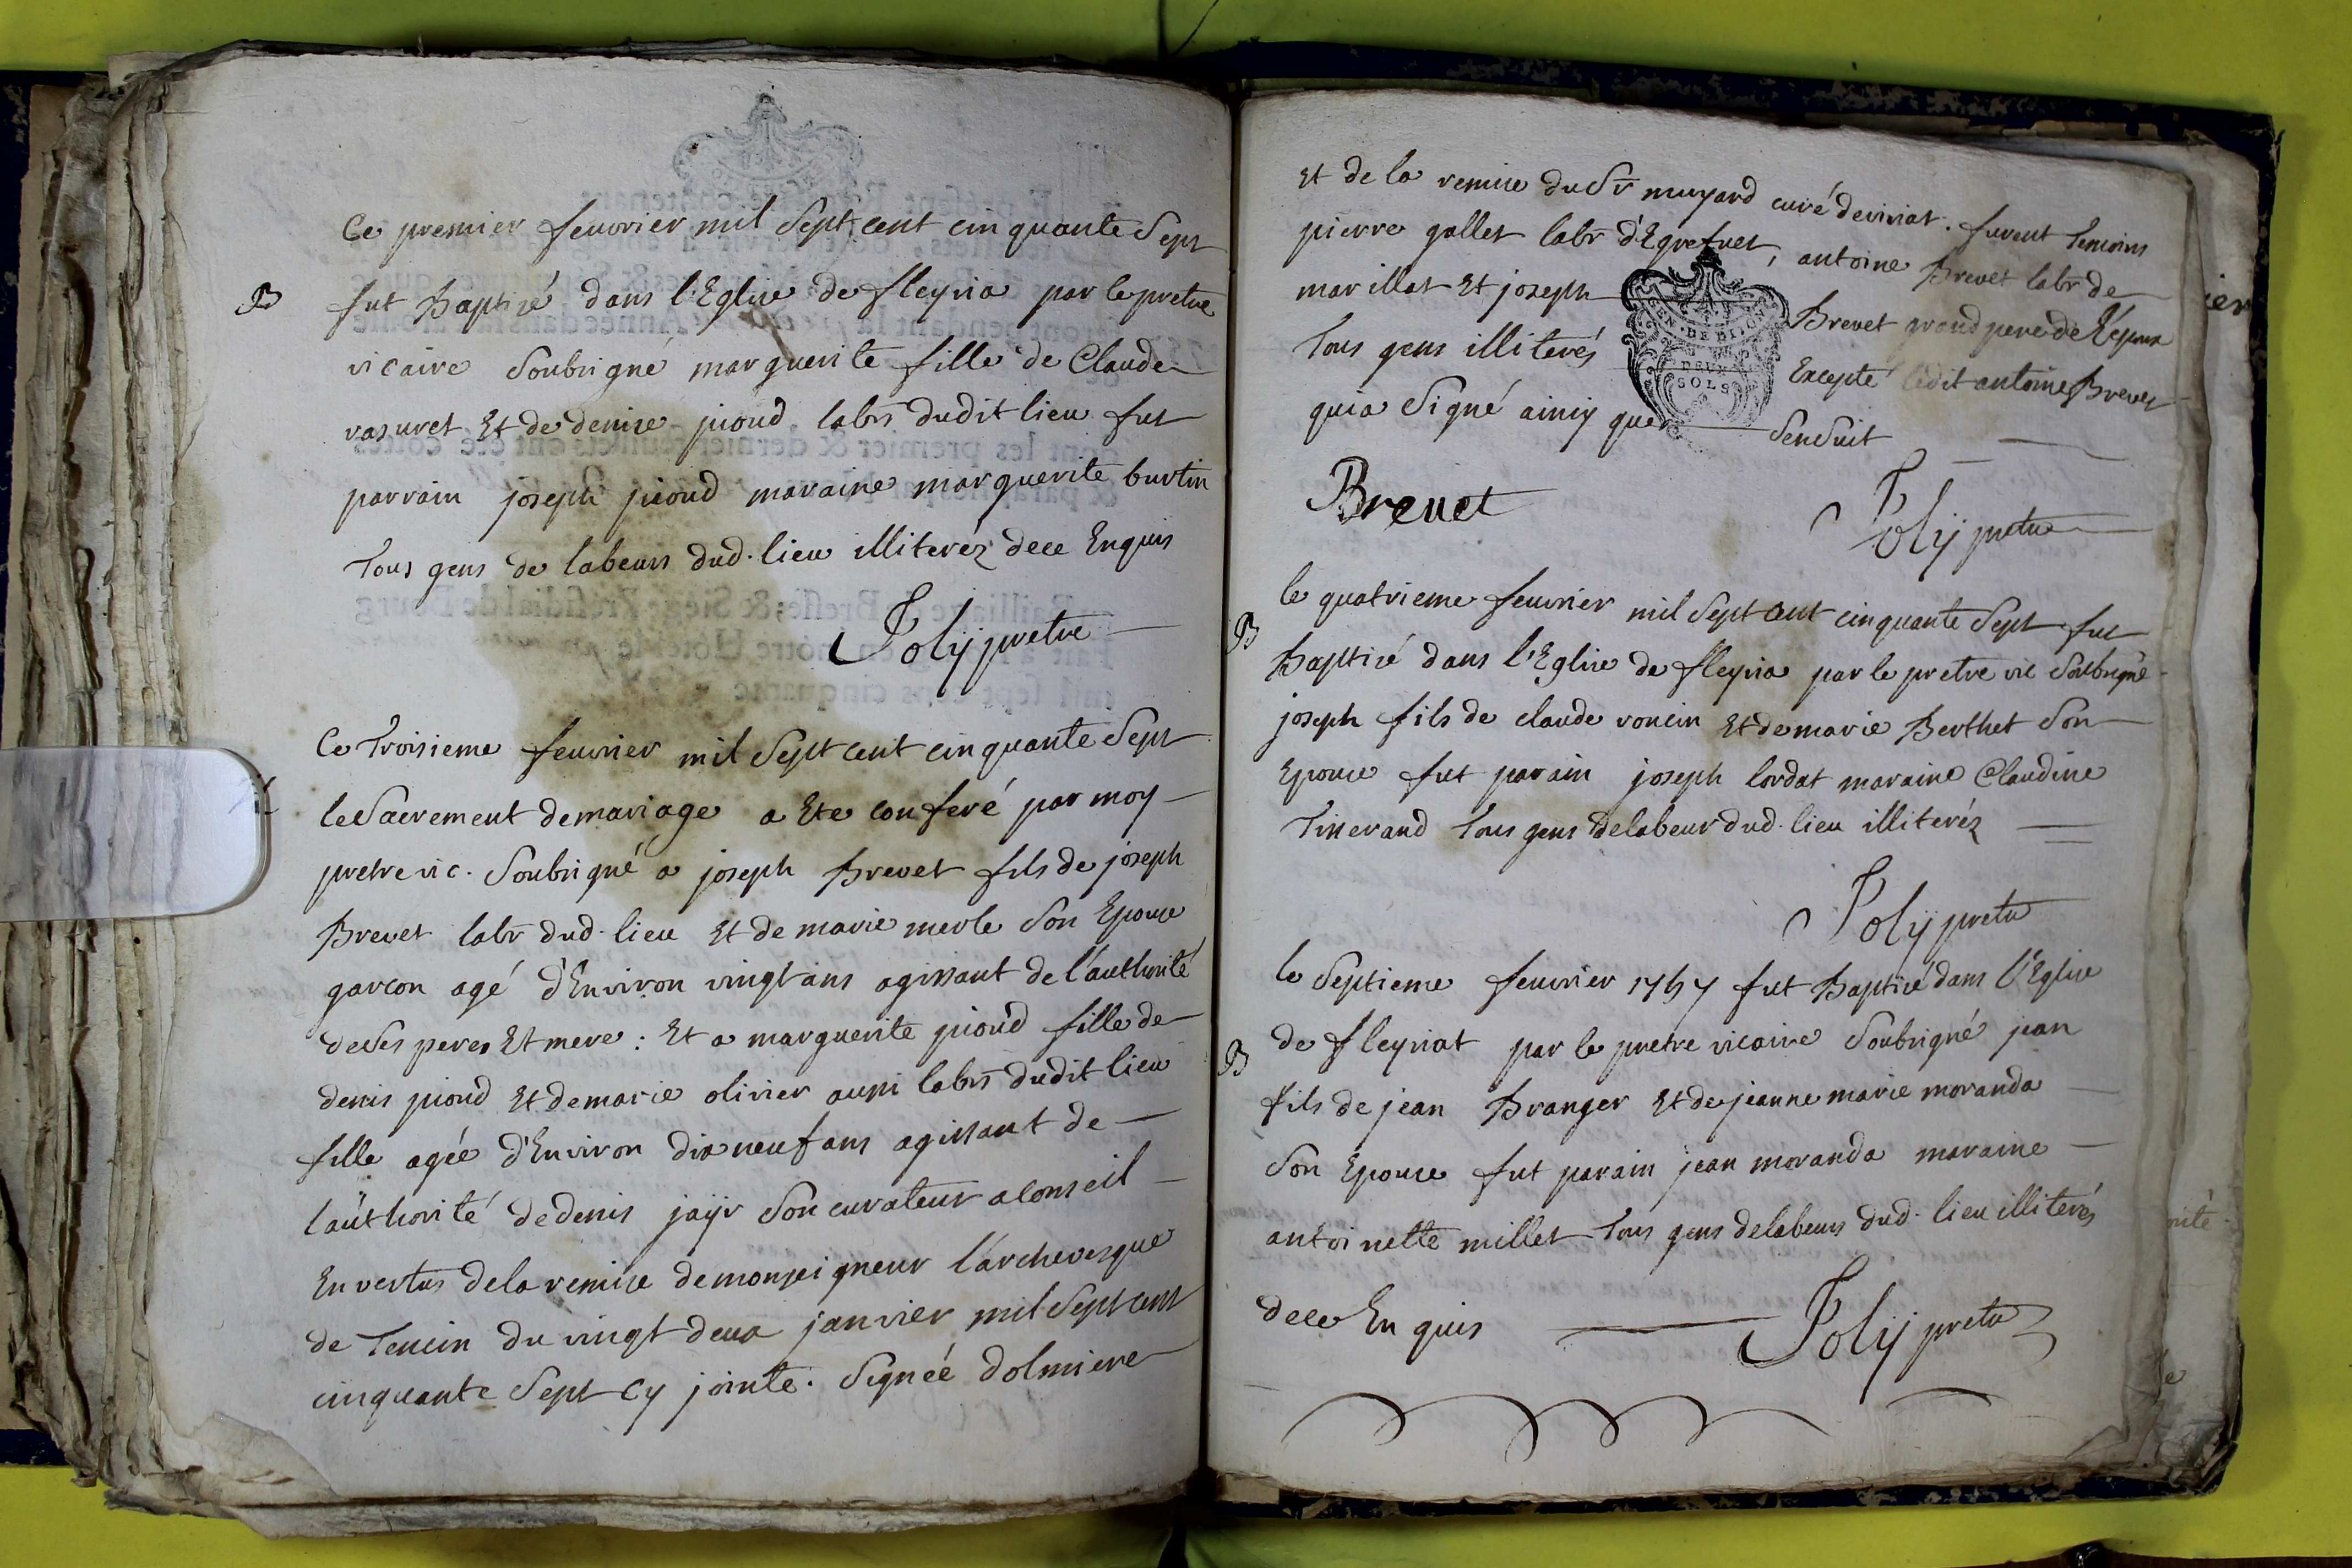 Ce premier feuvrier mil Sept cent cinquante Sept
B
fut Baptizé dans l'Eglise de fleyria par le pretre
vicaire Soubsigné marguerite fille de Claude
vasuret Et de denise pioud labrs dudit lieu fut
parrain joseph pioud maraine marguerite burtin
Tous gens de labeurs dud. lieu illiteréz dece Enquis
Joly pretre
Ce Troisieme feuvrier mil Sept cent cinquante Sept
le Sacrement de mariage a Ete conferé par moy
pretre vic. Soubsigné a joseph Brevet fils de joseph
Brevet labr dud. lieu Et de marie merle Son Epouse
garcon agé d'Environ vingt ans agissant de l'authorité
de Ses peres Et mere : Et a marguerite pioud fille de
denis pioud Et de marie olivier aussi labrs dudit lieu
fille agée d'Environ dix neuf ans agissant de
l'authorité de denis jayr Son curateur a Conseil
En vertus de la remise de monseigneur l'archevesque
de Tencin du vingt deux janvier mil Sept cent
cinquante Sept Cy jointe. Signée dolmiere
Et de la remise du Sr muyard curé de viriat. furent Temoins
pierre gallet labr d'Egrefuet, antoine Brevet labr de
marillat Et joseph Brevet grand pere de l'époux
Tous gens illiterés Excepté ledit antoine Brevet
GEN. DE DIJON
DEUX
SOLS
qui a Signé ainsy que Sensuit
Brevet
Joly pretre
le quatrieme feuvrier mil Sept cent cinquante Sept fut
B
Baptizé dans l'Eglise de fleyria par le pretre vic Soubsigné
joseph fils de claude voncin Et de marie Berthet Son
Epouse fut parain joseph lordat maraine Claudine
Tisserand Tous gens de labeur dud. lieu illiteréz
Joly pretre
le Septieme feuvrier 1757 fut Baptizé dans l'Eglise
B
de fleyriat par le pretre vicaire Soubsigné jean
fils de jean Branger Et de jeanne marie moranda
Son Epouse fut parain jean moranda maraine
antoinette millet Tous gens de labeurs dud. lieu illiterés
dece En quis
Joly pretre